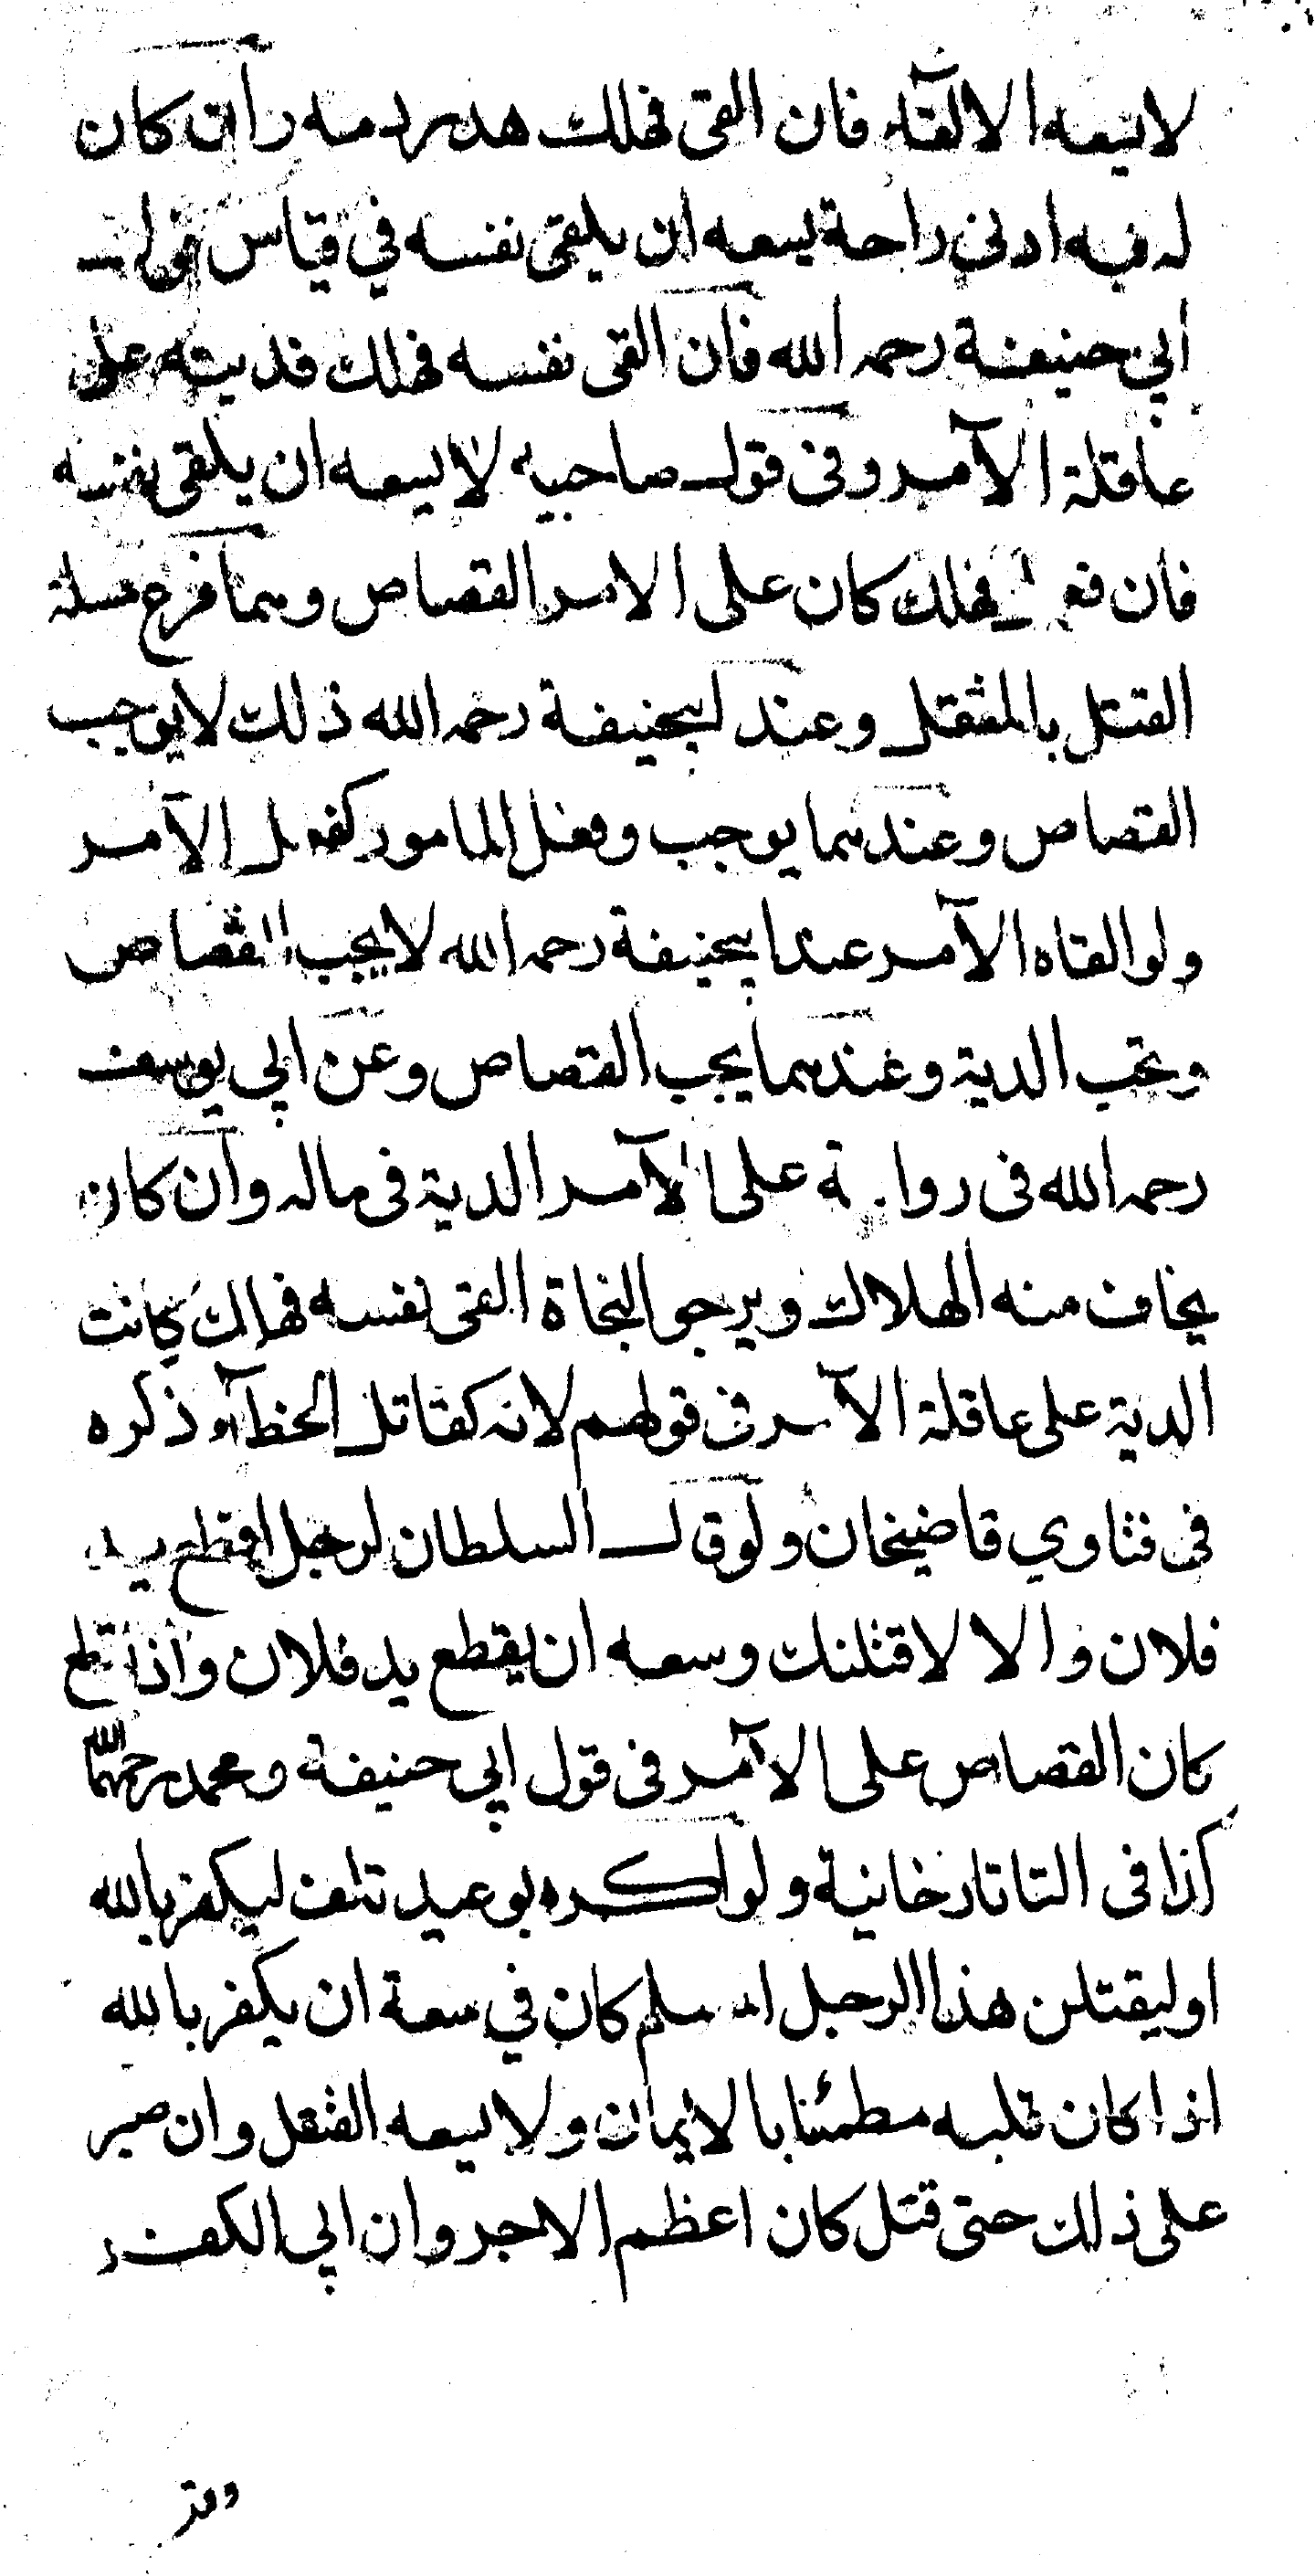 لا يسعه الالقآء فان القى فهلك هدر دمه وان كان
له فيه ادنى راحة يسعه ان يلقى نفسه في قياس قول
ابي حنيفة رحمه الله فان القى نفسه فهلك فديته على
عاقلة الآمر وفى قول صاحبيه لا يسعه ان يلقى نفسه
فان فعل فهلك كان على الامر القصاص وهما فرع مسئلة
القتل بالمثقل وعند ابيحنيفة رحمه الله ذلك لا يوجب
القصاص وعندهما يوجب وفعل المامور كفعل الآمر
ولو القاه الآمر عند ابيحنيفة رحمه الله لا يجب القصاص
وتجب الدية وعندهما يجب القصاص وعن ابي يوسف
رحمه الله فى رواية على الآمر الدية فى ماله وان كان
يخاف منه الهلاك ويرجو النجاة القى نفسه فهلك كانت
الدية على عاقلة الآمر فى قولهم لانه كقاتل الخطآء وذكره
فى فتاوي قاضيخان ولو قال السلطان لرجل اقطع يد
فلان والا لاقتلنك وسعه ان يقطع يد فلان واذا قطع
كان القصاص على الآمر فى قول ابي حنيفة ومحمد رحمهما الله
كذا فى التاتارخانية ولو اكره بوعيد تلف ليكفر بالله
او ليقتلن هذا الرجل المسلم كان في سعة ان يكفر بالله
اذا كان قلبه مطمئنا بالايمان ولا يسعه القتل وان صبر
على ذلك حتى قتل كان اعظم الاجر وان ابي الكفر